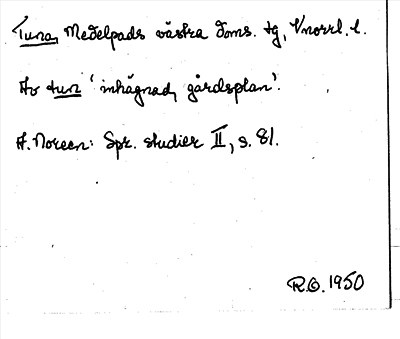 Tuna, Medelpads västra doms. tg, Vnorrl. l.
Av tun 'inhägnad, gårdsplan'.
A. Noreen: Spr. studier II, s. 81.
R.O. 1950